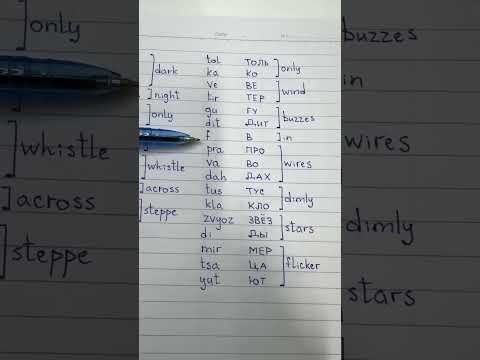 ]only
]whistle
]across
]steppe
tol ТОЛЬ
]dark ka КО ]only
ve ВЕ
]night tir ТЕР ]wind
gu ГУ
]only dit ДИТ ]buzzes
f В ]in
pra ПРО
]whistle va ВО ]wires
dah ДАХ
]across tus ТУС
kla КЛО ]dimly
]steppe zvyoz ЗВЁЗ
di ДЫ ]stars
mir МЕР
tsa ЦА ]flicker
yut ЮТ
buzzes
in
wires
dimly
stars